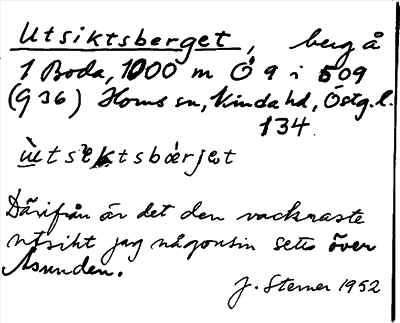 Utsiktsberget, berg å
1 Boda, 1000 m Ö 9 i 509
(9 36) Horns sn, Kinda hd, Östg. l.
134.
ùtsiktsbærjet
Därifrån är det den vackraste
utsikt jag någonsin setts över
Åsunden.
J. Sterner 1952